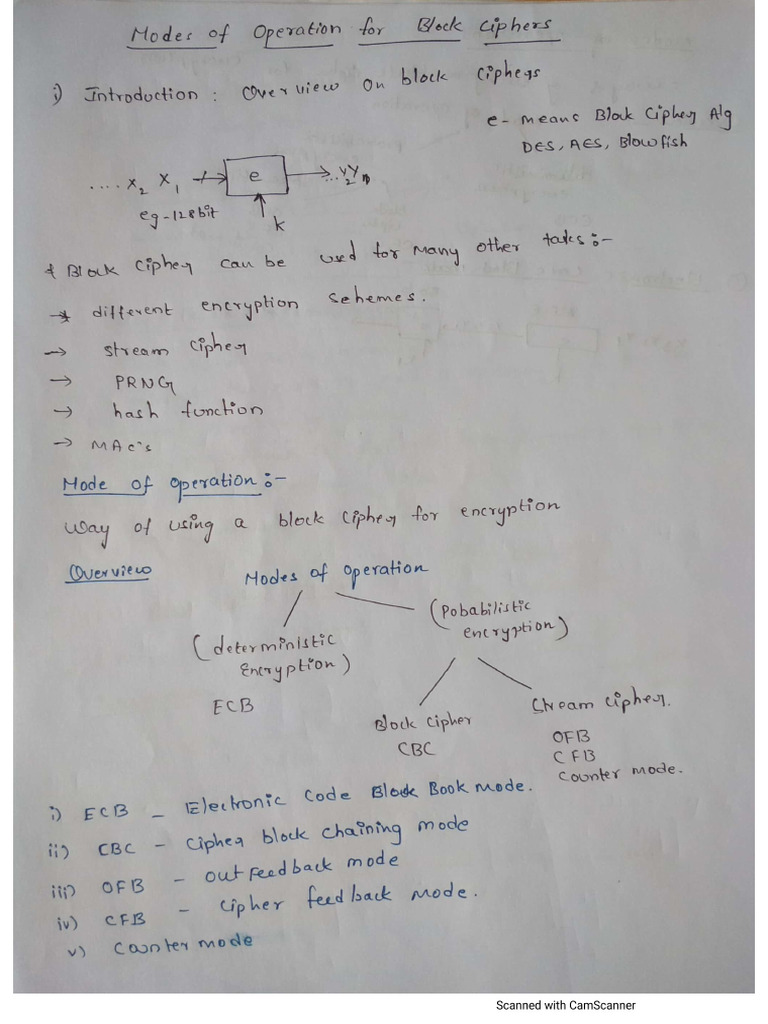 Modes of Operation for Block Ciphers
i) Introduction : Overview on block Ciphers
e - means Block Cipher Alg
DES, AES, Blowfish
.... X2 X1
e
...Y2 Y1
eg - 128 bit
k
* Block Cipher can be used for many other taks :-
→ different encryption sehemes.
→ stream Cipher
→ PRNG
→ hash function
→ MAC's
Mode of operation :-
Way of using a block Cipher for encryption
Overview
Modes of operation
(deterministic
Encryption)
ECB
(Pobabilistic
encryption)
Block Cipher
CBC
Stream Cipher.
OFB
CFB
Counter mode.
i) ECB - Electronic Code Book mode.
ii) CBC - Cipher block chaining mode
iii) OFB - Out feedback mode
iv) CFB - Cipher feedback Mode.
v) Counter mode
Scanned with CamScanner